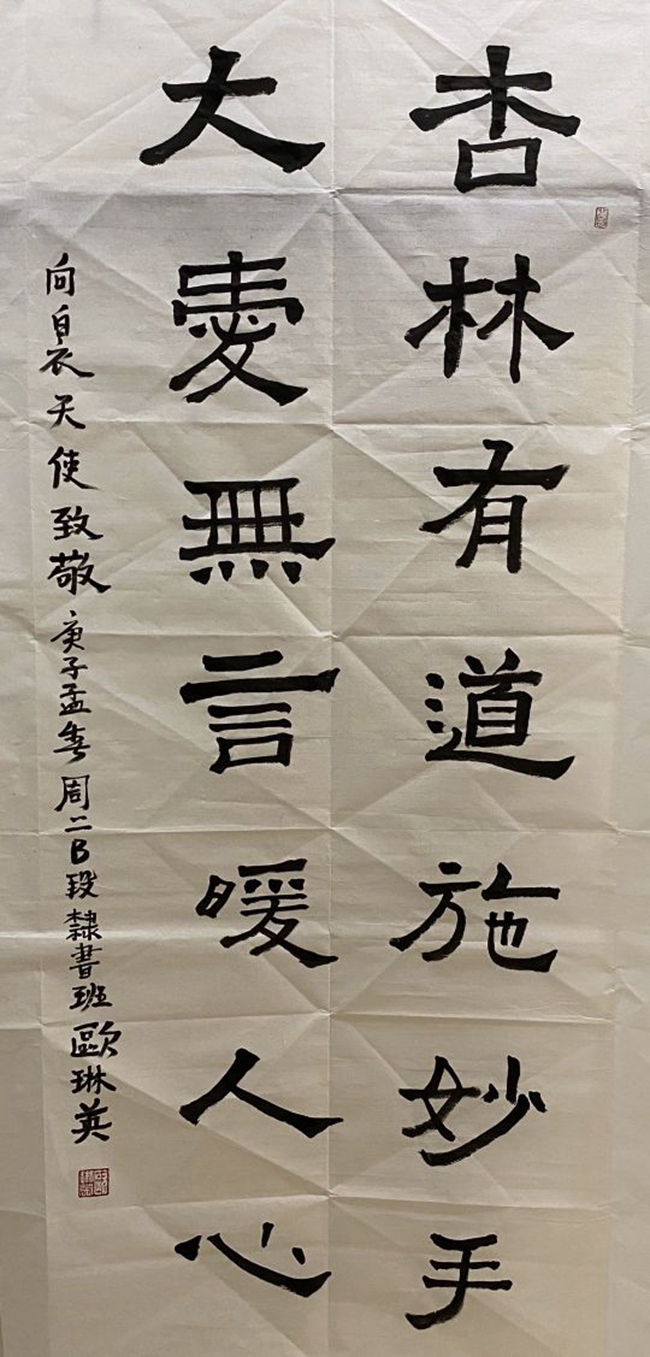 杏林有道施妙手
大愛無言暖人心
向白衣天使致敬 庚子孟春 周二B段隸書班 歐琳英